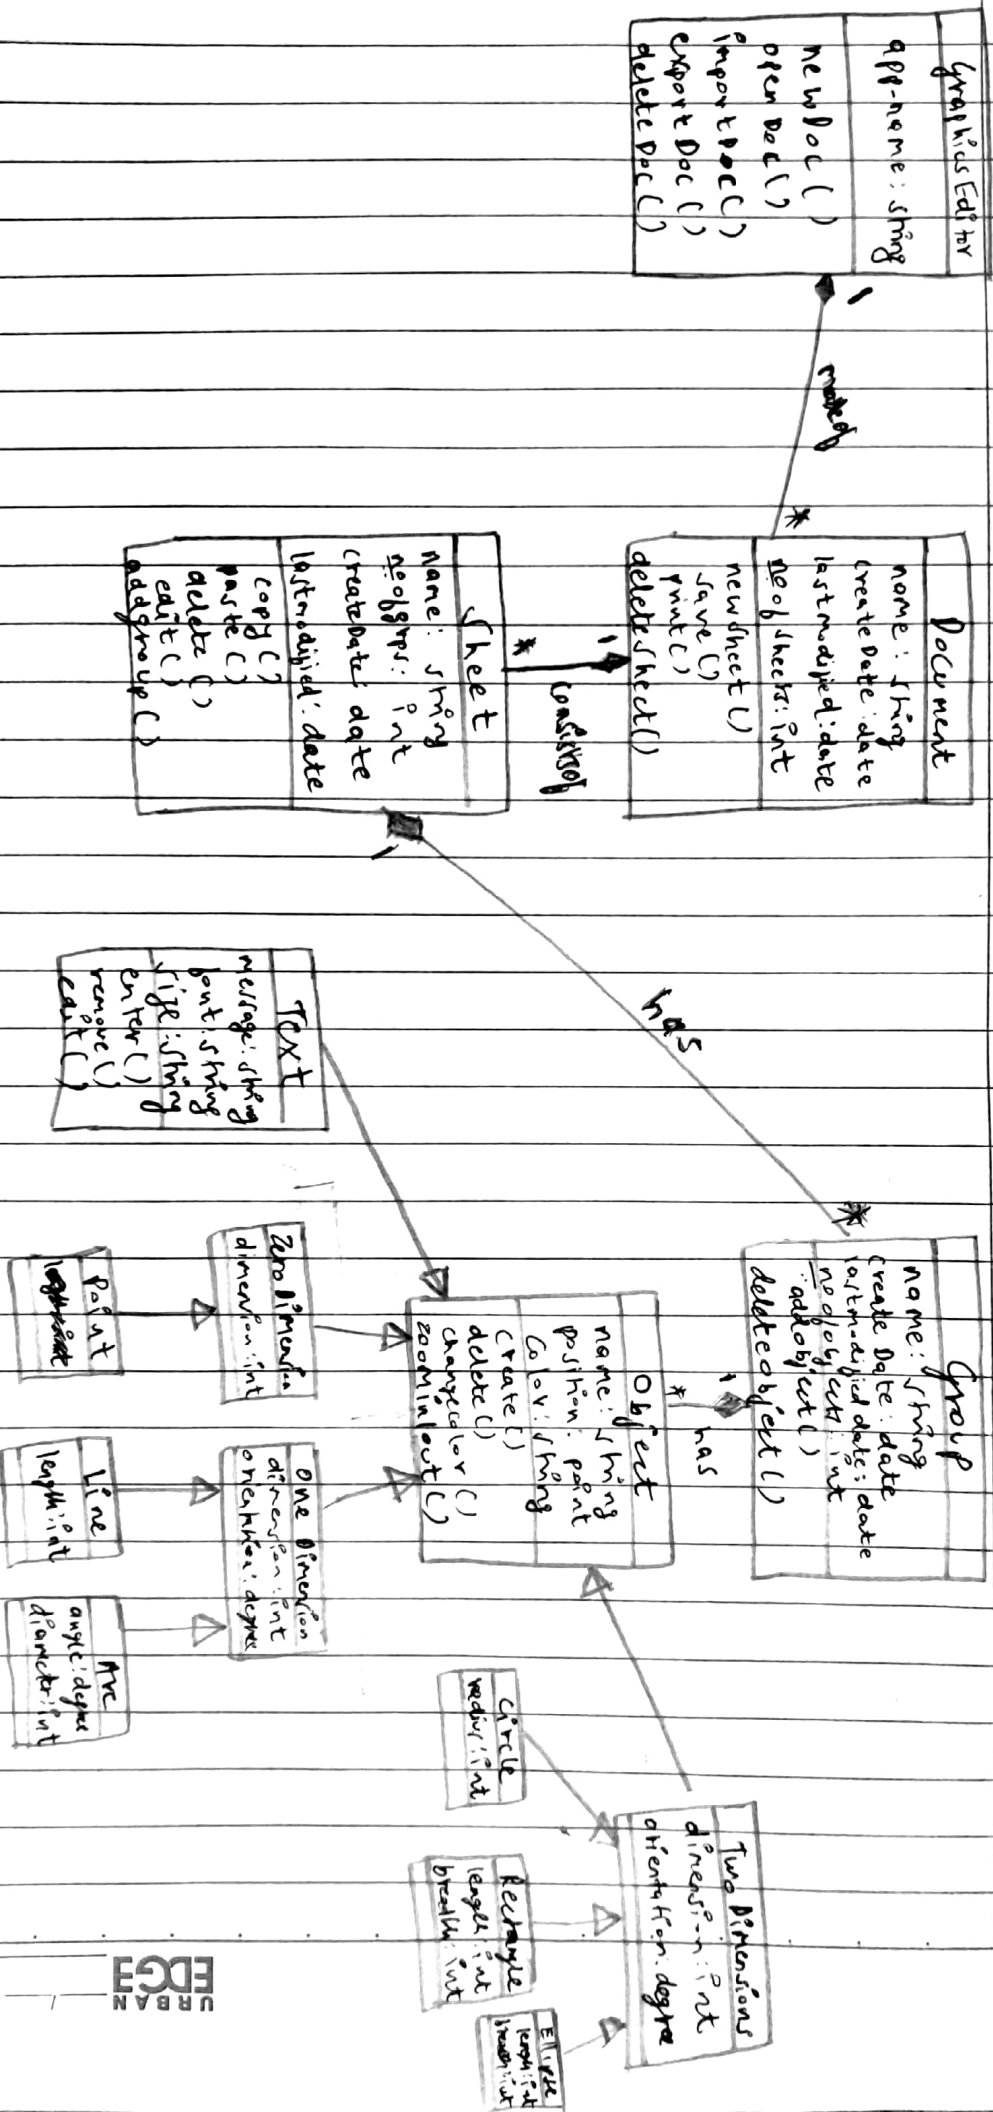 GraphicsEditor
app-name: string
newDoc()
openDoc()
importDoc()
exportDoc()
deleteDoc()
1
made of
*
Document
name: string
createDate: date
lastmodified: date
noofsheets: int
newsheet()
save()
print()
deletesheet()
1
consistsof
*
Sheet
name: string
noofgrps: int
createDate: date
lastmodified: date
copy()
paste()
delete()
edit()
addgroup()
1
has
*
Group
name: string
create Date: date
lastmodified date: date
noofobjects: int
addobject()
deleteobject()
1
has
*
Object
name: string
position: point
Color: string
create()
delete()
changecolor()
zoominlout()
Text
message: string
font: string
size: string
enter()
remove()
edit()
Zero Dimension
dimension: int
Point
One Dimension
dimension: int
orientation: degree
Line
length: int
Arc
angle: degree
diameter: int
Two Dimensions
dimension: int
orientation: degree
Circle
radius: int
Rectangle
length: int
breadth: int
Ellipse
length: int
URBAN
EDGE